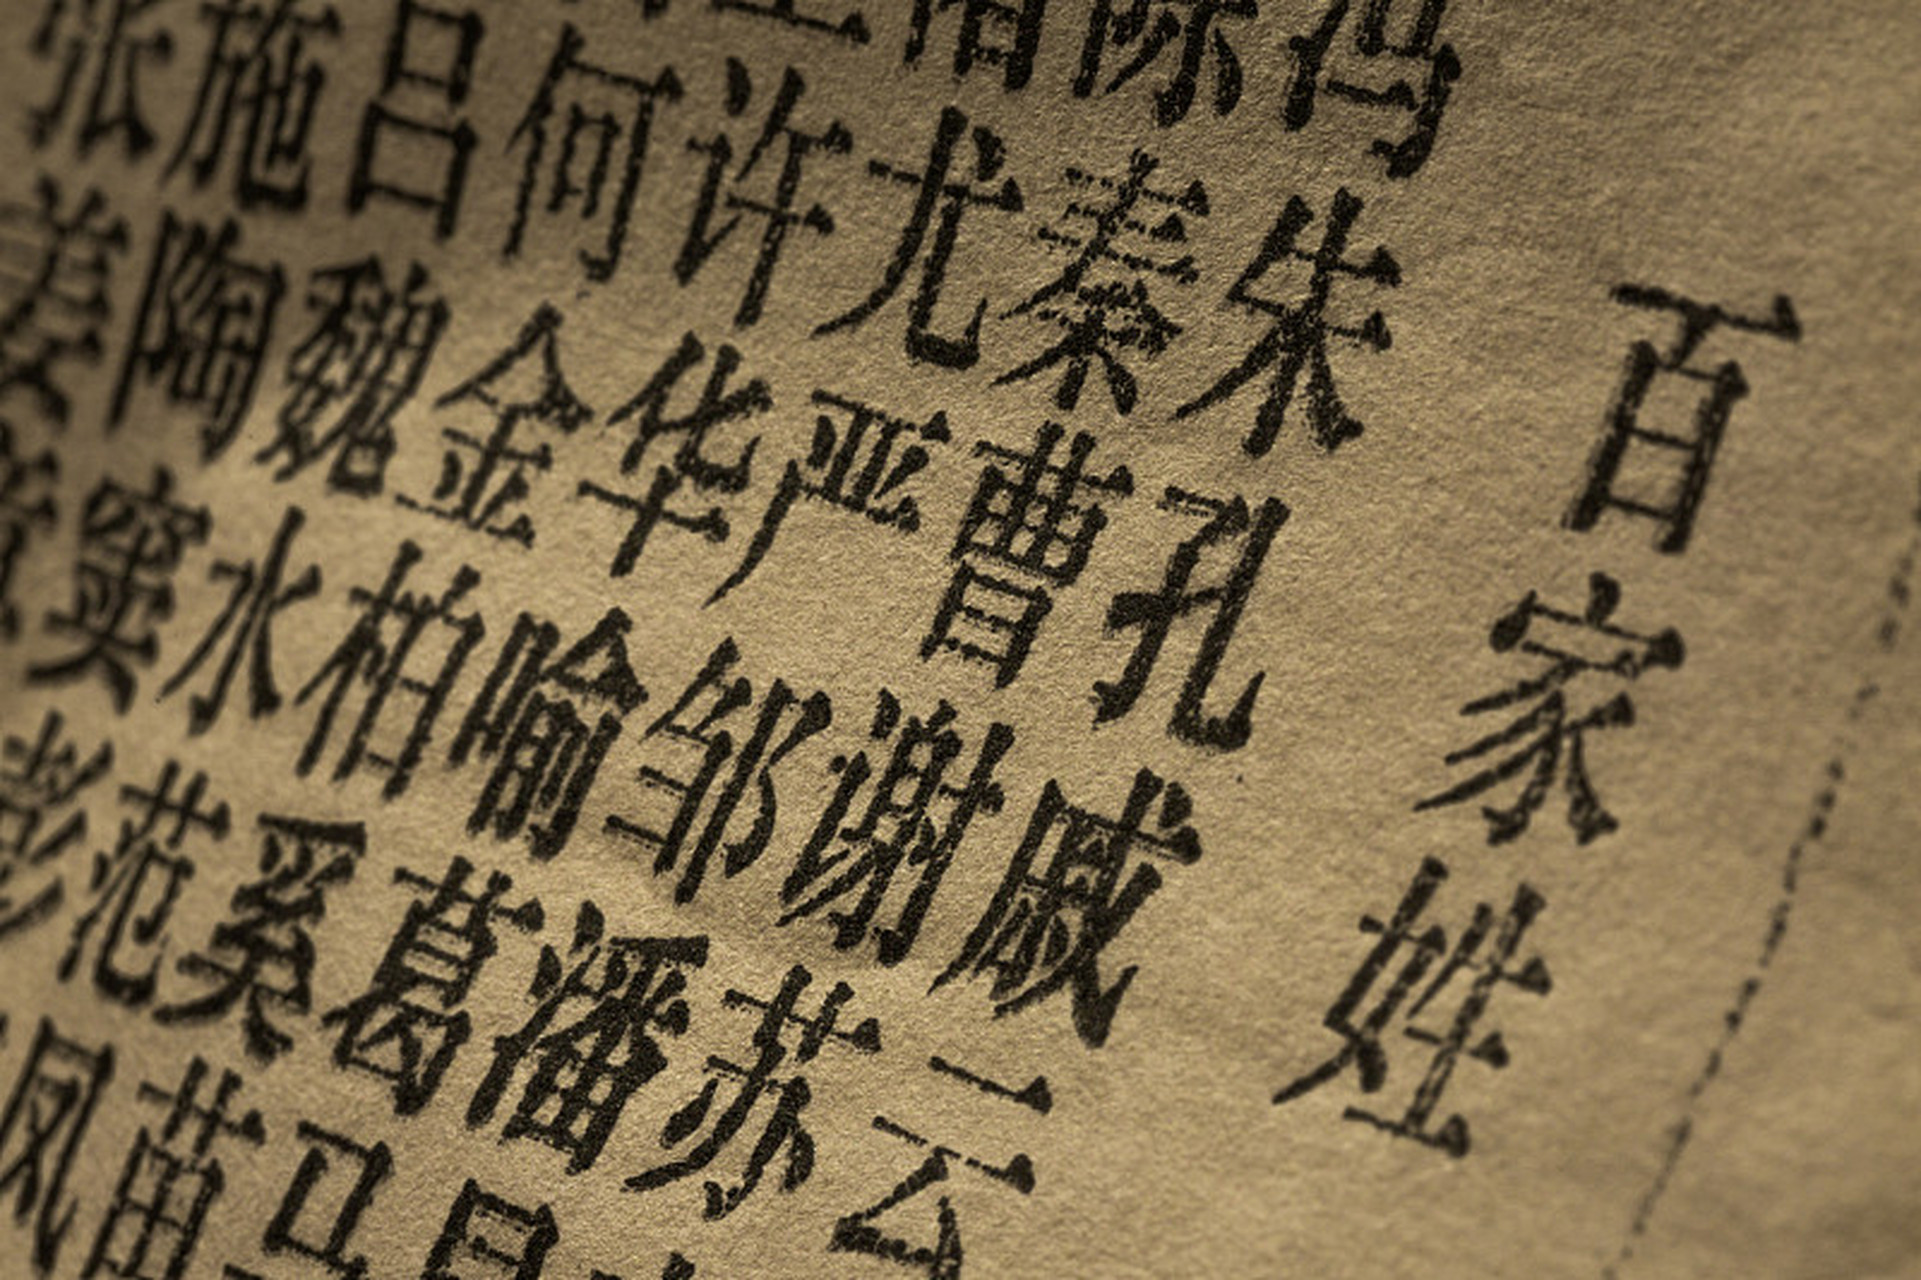 百家姓
冯陈
朱秦尤许何吕施张
孔曹严华金魏陶姜
戚谢邹喻柏水窦章
云苏潘葛奚范彭
昌马苗凤